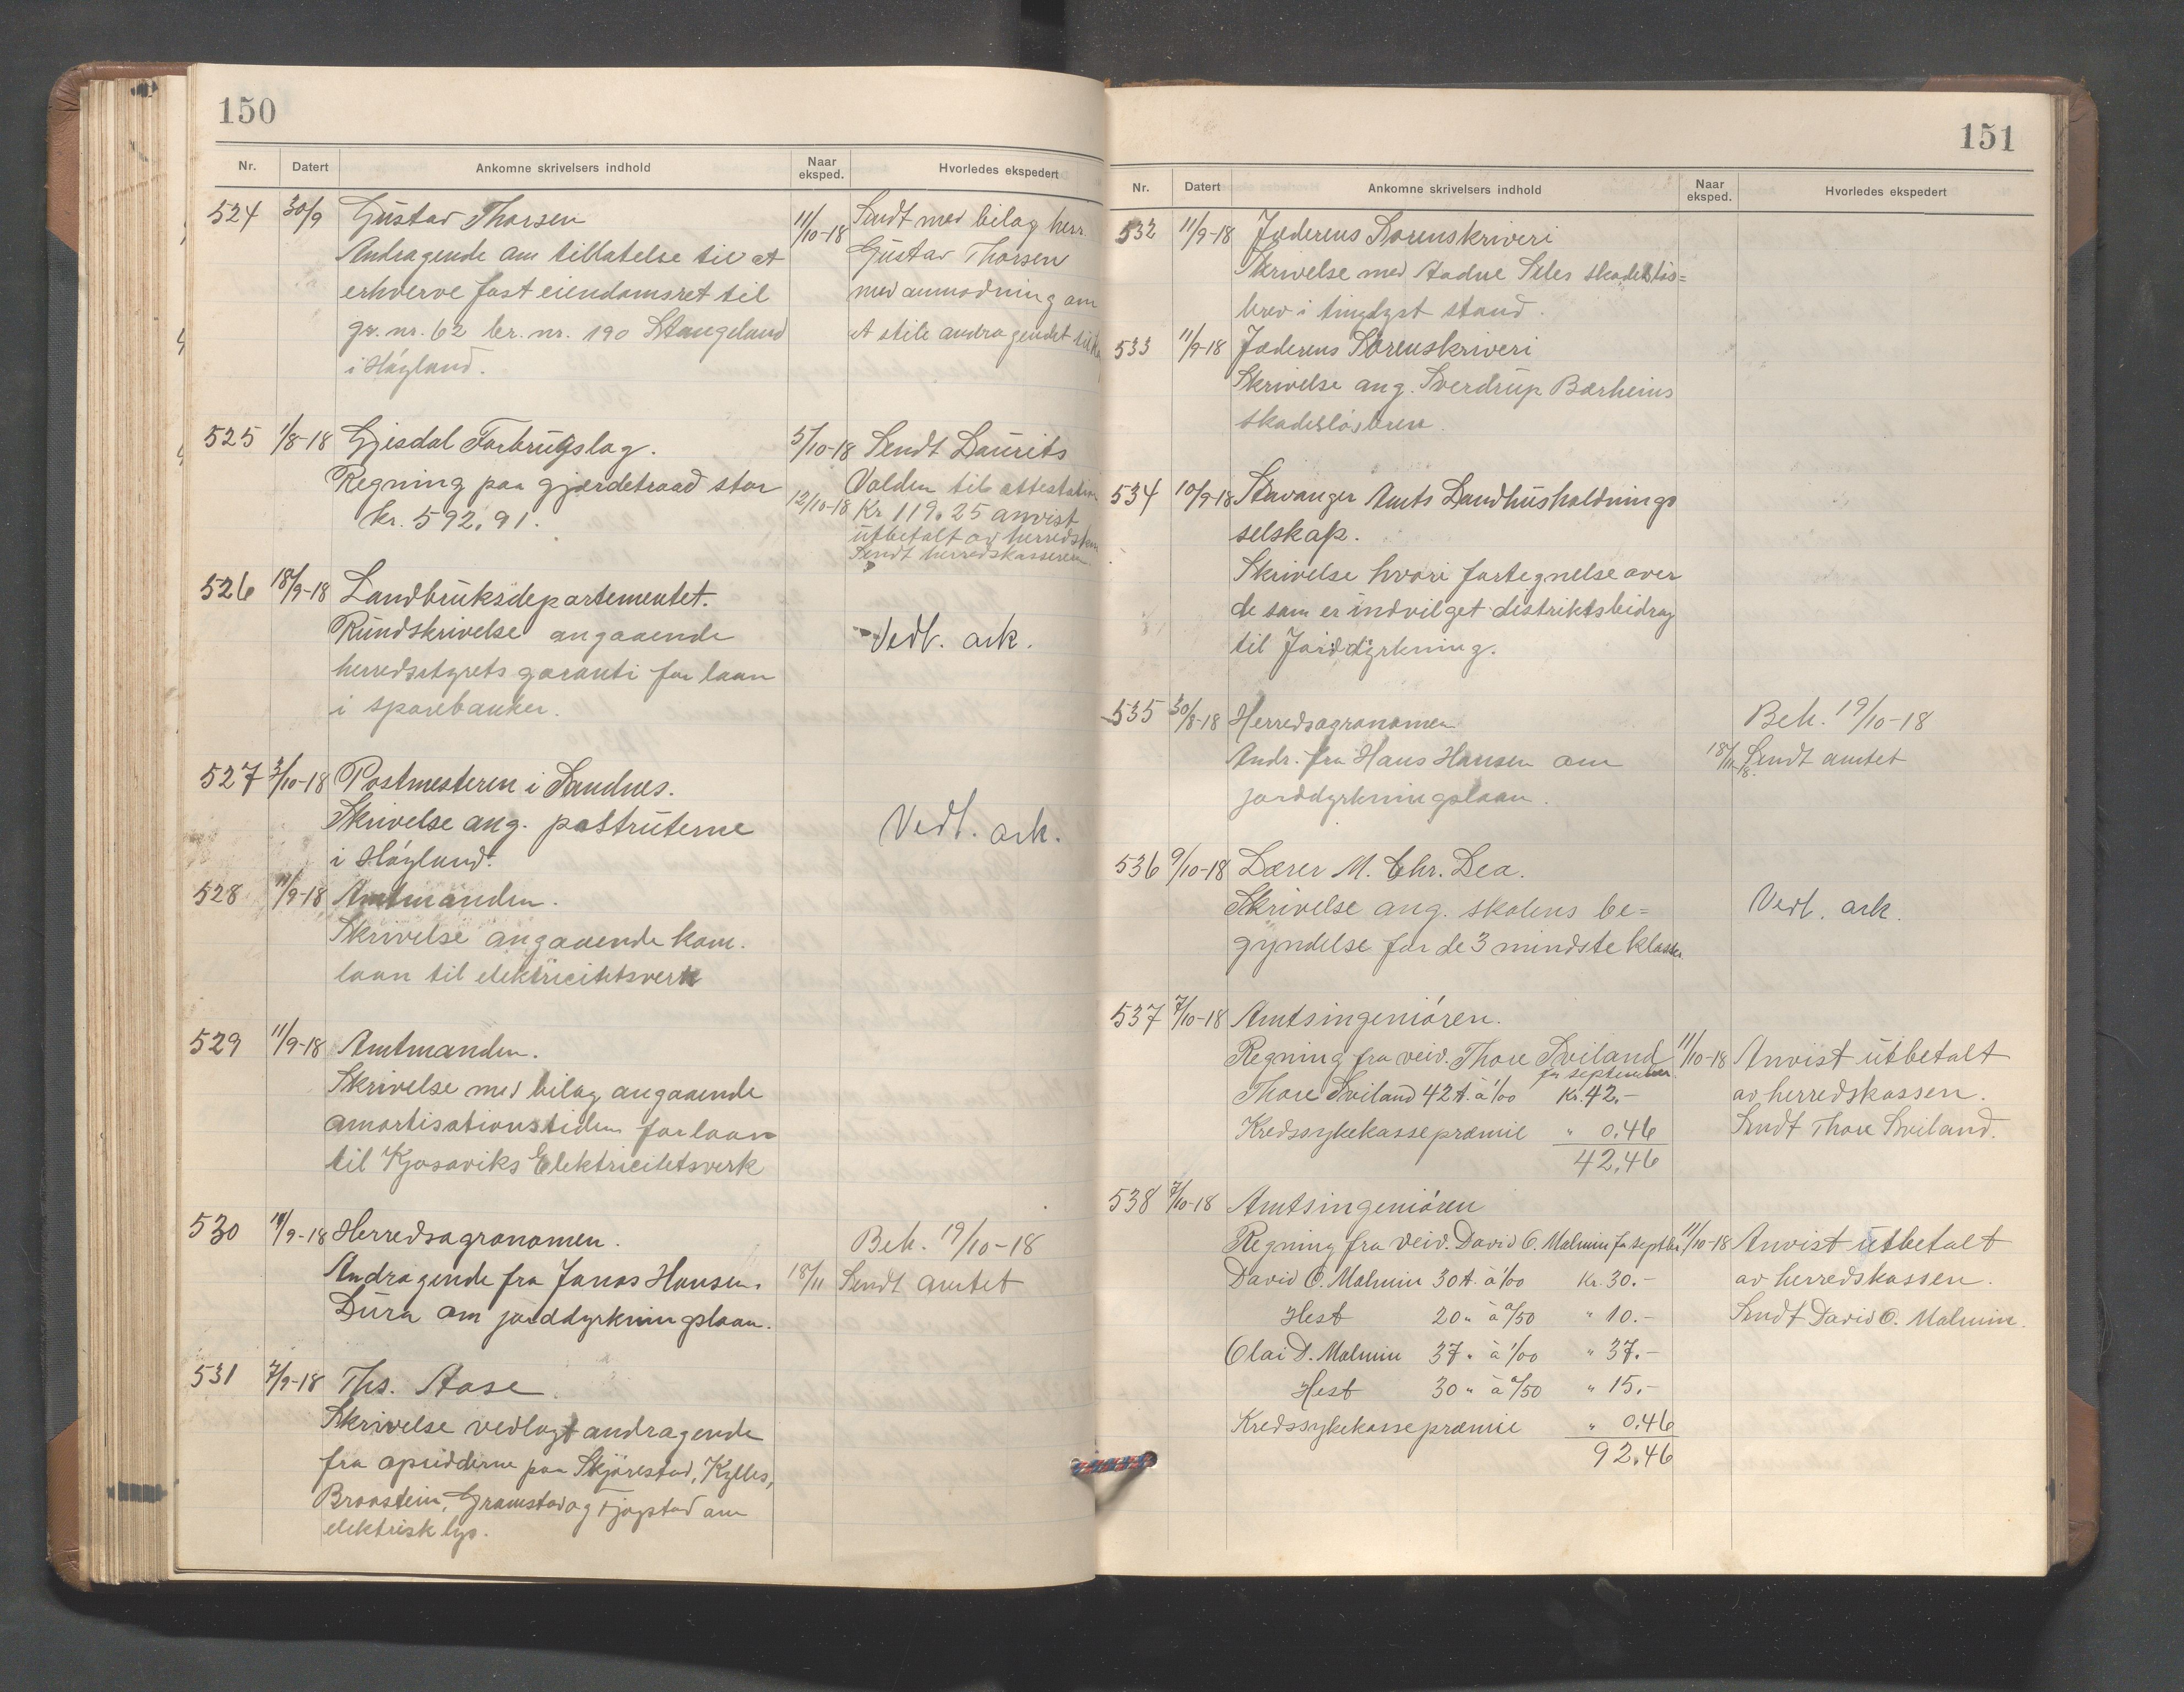 150
Nr. Datert Ankomne skrivelsers indhold Naar eksped. Hvorledes ekspedert
524 30/9 Gustav Thorsen 11/10-18 Sendt med bilag herr
Andragende om tillatelse til at Gustav Thorsen
erhverve fast eiendomsret til med anmodning om
gr. nr. 62 br. nr. 190 Stangeland at stile andragendet til
i Høyland.
525 1/8-18 Gjesdal Forbrugslag. 5/10-18 Sendt Laurits
Regning paa gjærdetraad stor Volden til attestation
kr. 592.91. 12/10-18 Kr 119.25 anvist
utbetalt av herredsk
Sendt herredskasseren
526 18/9-18 Landbruksdepartementet.
Rundskrivelse angaaende Vedl. ark.
herredsstyrets garanti for laan
i sparebanker.
527 3/10-18 Postmesteren i Sandnes.
Skrivelse ang. postruterne Vedl. ark.
i Høyland.
528 11/9-18 Amtmanden.
Skrivelse angaaende kom.
laan til elektricitetsverk
529 11/9-18 Amtmanden.
Skrivelse med bilag angaaende
amortisationstiden for laan
til Kjosaviks Elektricitetsverk
530 11/9-18 Herredsagronomen. Beh. 19/10-18
Andragende fra Jonas Hansen. 18/11 Sendt amtet
Lura om jorddyrkningslaan.
531 7/9-18 Ths. Aase.
Skrivelse vedlagt andragende
fra opsidderne paa Skjørestad, Kylles,
Braastein, Gramstad og Fjogstad om
elektrisk lys.
151
Nr. Datert Ankomne skrivelsers indhold Naar eksped. Hvorledes ekspedert
532 11/9-18 Jæderens Sorenskriveri
Skrivelse med Aadne Seles skadesløs=
brev i tinglyst stand.
533 11/9-18 Jæderens Sorenskriveri
Skrivelse ang. Sverdrup Bærheims
skadesløsbrev.
534 10/9-18 Stavanger Amts Landhusholdnings
selskap.
Skrivelse hvori fortegnelse over
de som er indvilget distriktsbidrag
til Jorddyrkning.
535 30/8-18 Herredsagronomen Beh. 19/10-18
Andr. fra Hans Hansen om 18/11-18. Sendt amtet
jorddyrkningslaan.
536 9/10-18 Lærer M. Chr. Lea.
Skrivelse ang. skolens be= Vedl. ark.
gyndelse for de 3 mindste klasser.
537 7/10-18 Amtsingeniøren.
Regning fra veiv. Thore Sviland 11/10-18 Anvist utbetalt
for september.
Thore Sviland 42 t. à 1/00 Kr. 42.- av herredskassen.
Kredssykekassepræmie " 0.46 Sendt Thore Sviland.
42.46
538 7/10-18 Amtsingeniøren
Regning fra veiv. David O. Malmin for septbr. 11/10-18 Anvist utbetalt
David O. Malmin 30 t. à 1/00 Kr. 30.- av herredskassen.
Hest 20 " à 0/50 " 10.- Sendt David O. Malmin.
Olai D. Malmin 37 " à 1/00 " 37.-
Hest 30 " à 0/50 " 15.-
Kredssykekassepræmie " 0.46
92.46